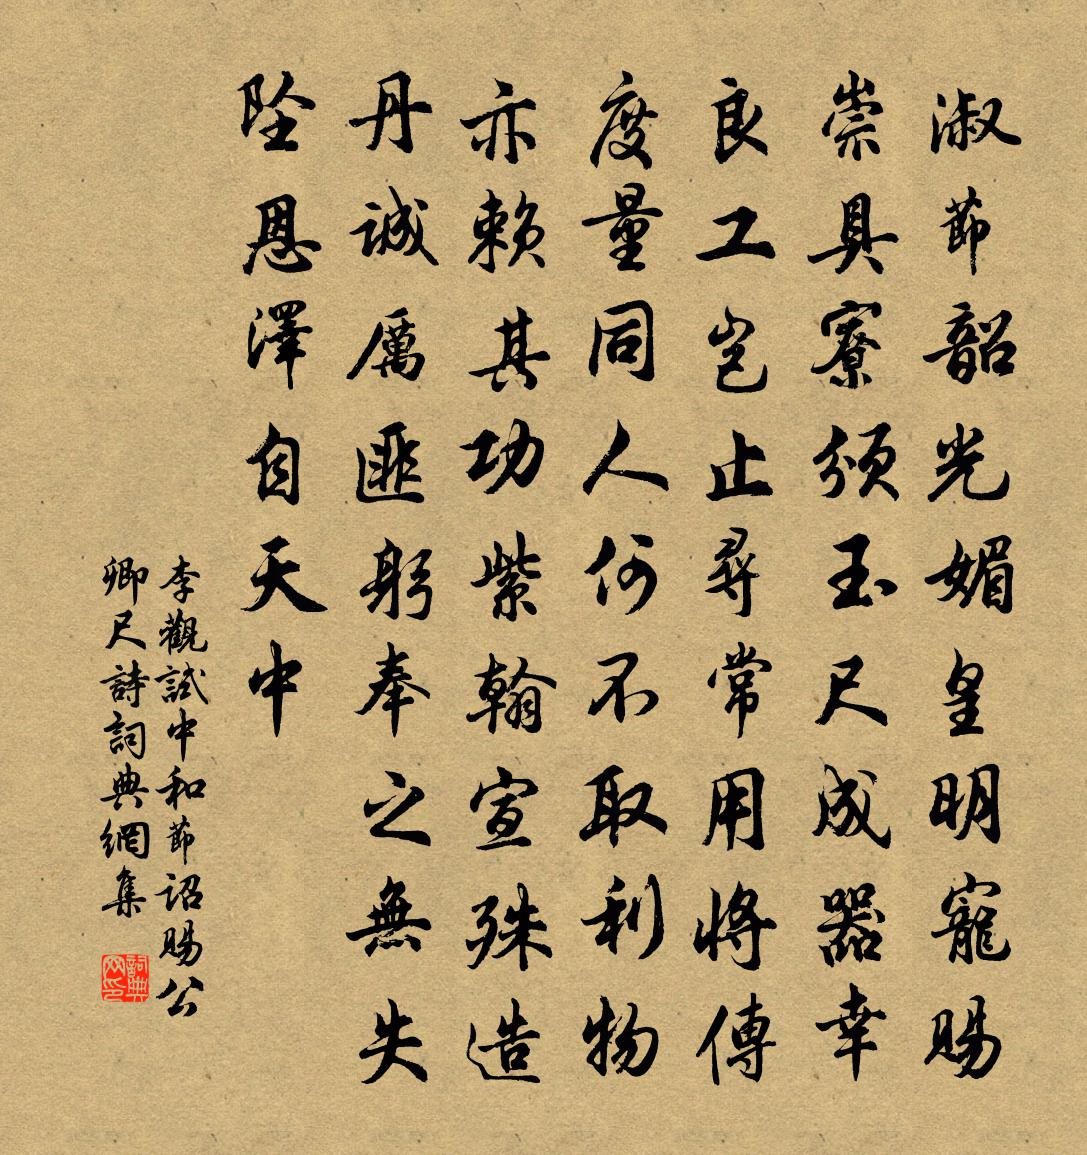 淑節韶光媚皇明寵賜
崇具寮頒玉尺成器幸
良工豈止尋常用將傳
度量同人何不取利物
亦賴其功紫翰宣殊造
丹誠厲匪躬奉之無失
墜恩澤自天中
李觀試中和節詔賜公
卿尺詩詞典網集
詞典
网印